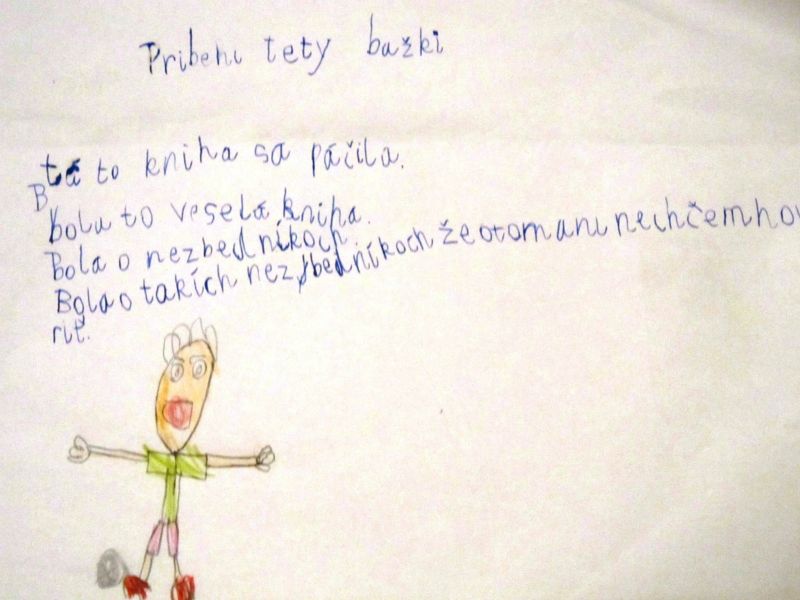 Pribehi tety bažki
tá to kniha sa páčila.
B
bola to veselá kniha.
Bola o nezbedníkoch
Bola o takích nezbedníkoch že otom ani nechčem hovo
riť.